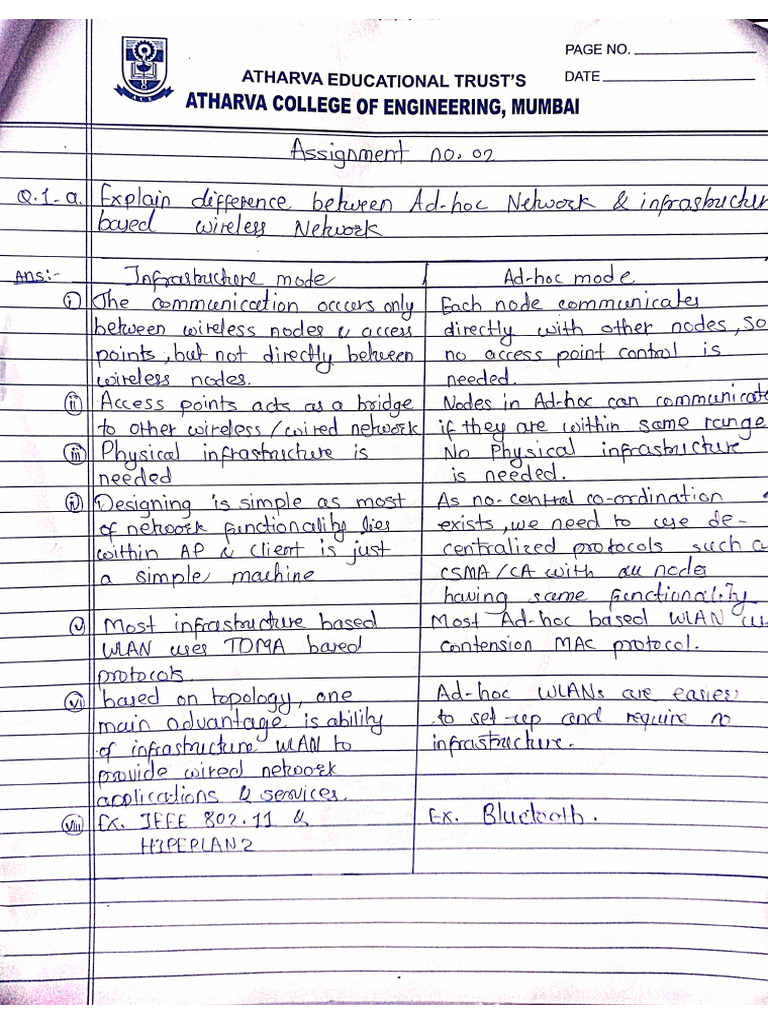 PAGE NO.
DATE
A.C.E
ATHARVA EDUCATIONAL TRUST'S
ATHARVA COLLEGE OF ENGINEERING, MUMBAI
Assignment no. 02
Q.1-a. Explain difference between Ad-hoc Network & infrastructure
based wireless Network
Ans:- Infrastructure mode Ad-hoc mode
i) The communication occurs only Each node communicates
between wireless nodes & access directly with other nodes, so
points, but not directly between no access point control is
wireless nodes. needed.
ii) Access points acts as a bridge Nodes in Ad-hoc can communicate
to other wireless/wired network if they are within same range
iii) Physical infrastructure is No Physical infrastructure
needed is needed.
iv) Designing is simple as most As no-central co-ordination
of network functionality lies exists, we need to use de-
within AP & client is just centralized protocols such a
a simple machine CSMA/CA with all nodes
having same functionality
v) Most infrastructure based Most Ad-hoc based WLAN us
WLAN uses TDMA based contension MAC protocol.
protocols.
vi) based on topology, one Ad-hoc WLANs are easier
main advantage is ability to set-up and require no
of infrastructure WLAN to infrastructure.
provide wired network
applications & services.
viii) Ex. IEEE 802.11 & Ex. Bluetooth.
HIPEPLAN2